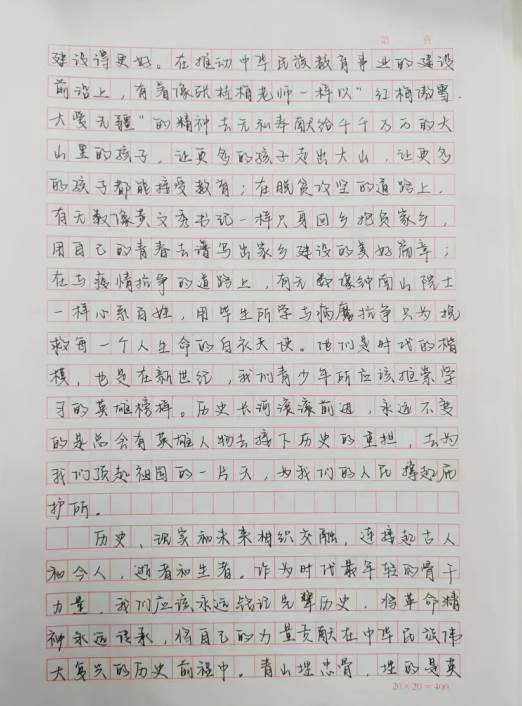 第 页
建设得更好。在推动中华民族教育事业的建设
前沿上，有着像张桂梅老师一样以“红梅傲雪，
大爱无疆”的精神去无私奉献给千千万万的大
山里的孩子，让更多的孩子走出大山，让更多
的孩子都能接受教育；在脱贫攻坚的道路上，
有无数像黄文秀书记一样只身回乡把负家乡，
用自己的青春去谱写出家乡建设的美好篇章；
在与疫情抗争的道路上，有无数像钟南山院士
一样心系百姓，用毕生所学与病魔抗争只为挽
救每一个人生命的白衣天使。他们是时代的楷
模，也是在新世纪，我们青少年所应该推崇学
习的英雄榜样。历史长河滚滚前进，永远不变
的是总会有英雄人物去接下历史的重担，去为
我们顶起祖国的一片天，为我们的人民撑起庇
护所。
历史、现实和未来相织交融，连接起古人
和今人，逝者和生者。作为时代最年轻的骨干
力量，我们应该永远铭记先辈历史，将革命精
神永远传承，将自己的力量贡献在中华民族伟
大复兴的历史前程中。青山埋忠骨，埋的是英
20×20=400